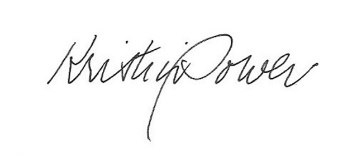 Kristin Power